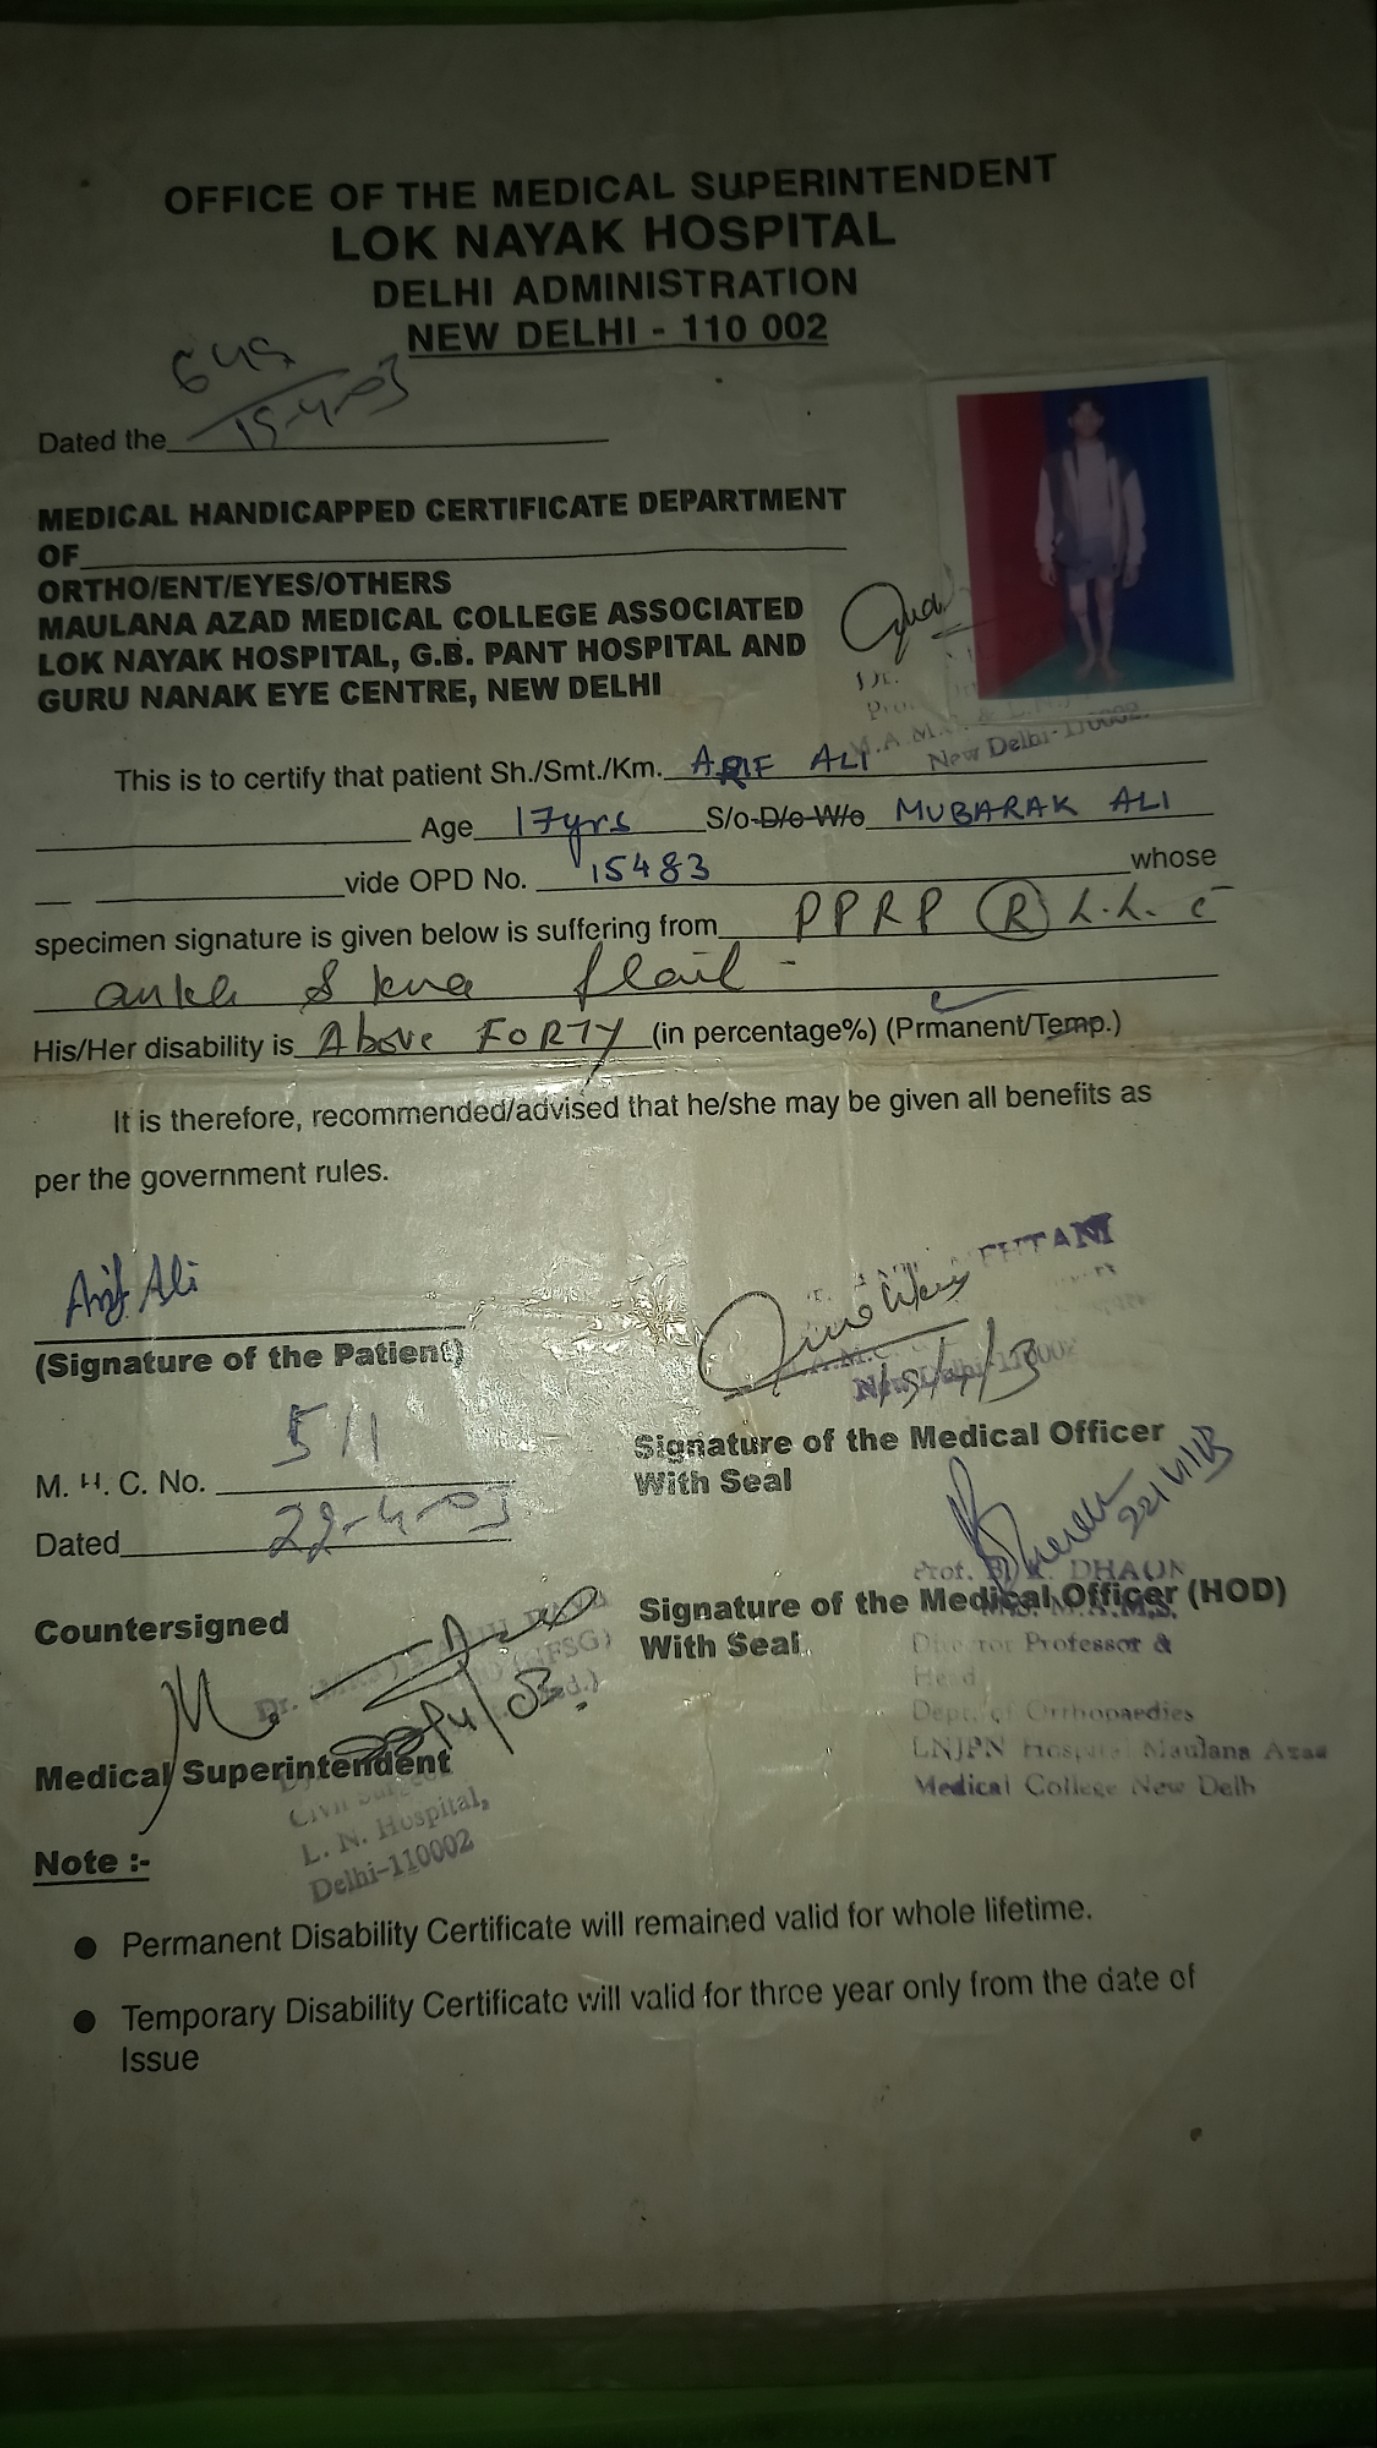 OFFICE OF THE MEDICAL SUPERINTENDENT
LOK NAYAK HOSPITAL
DELHI ADMINISTRATION
NEW DELHI - 110 002
Dated the 15-4-03
MEDICAL HANDICAPPED CERTIFICATE DEPARTMENT
OF
ORTHO/ENT/EYES/OTHERS
MAULANA AZAD MEDICAL COLLEGE ASSOCIATED
LOK NAYAK HOSPITAL, G.B. PANT HOSPITAL AND
GURU NANAK EYE CENTRE, NEW DELHI
Dr.
New Delhi-110002.
This is to certify that patient Sh./Smt./Km. ARIF ALI
Age 17yrs S/o-D/o-W/o MUBARAK ALI
vide OPD No. 15483 whose
specimen signature is given below is suffering from PPRP R L.L. c
ankle & knee flail -
His/Her disability is Above FORTY (in percentage%) (Prmanent/Temp.)
It is therefore, recommended/advised that he/she may be given all benefits as
per the government rules.
Arif Ali
(Signature of the Patient)
New Delhi-110002
15/4/03
Signature of the Medical Officer
With Seal
M. H. C. No. 511
Dated 22-4-03
22/4/03
Prof. DHAON
Countersigned
Signature of the Medical Officer (HOD)
With Seal
M.A.M.S.
Director Professor &
Head
Dept. of Orthopaedics
LNJPN Hospital Maulana Azad
Medical College New Delh
Dr.
Medical Superintendent
Civil Surgeon
L. N. Hospital,
Delhi-110002
Note :-
● Permanent Disability Certificate will remained valid for whole lifetime.
● Temporary Disability Certificate will valid for three year only from the date of
Issue